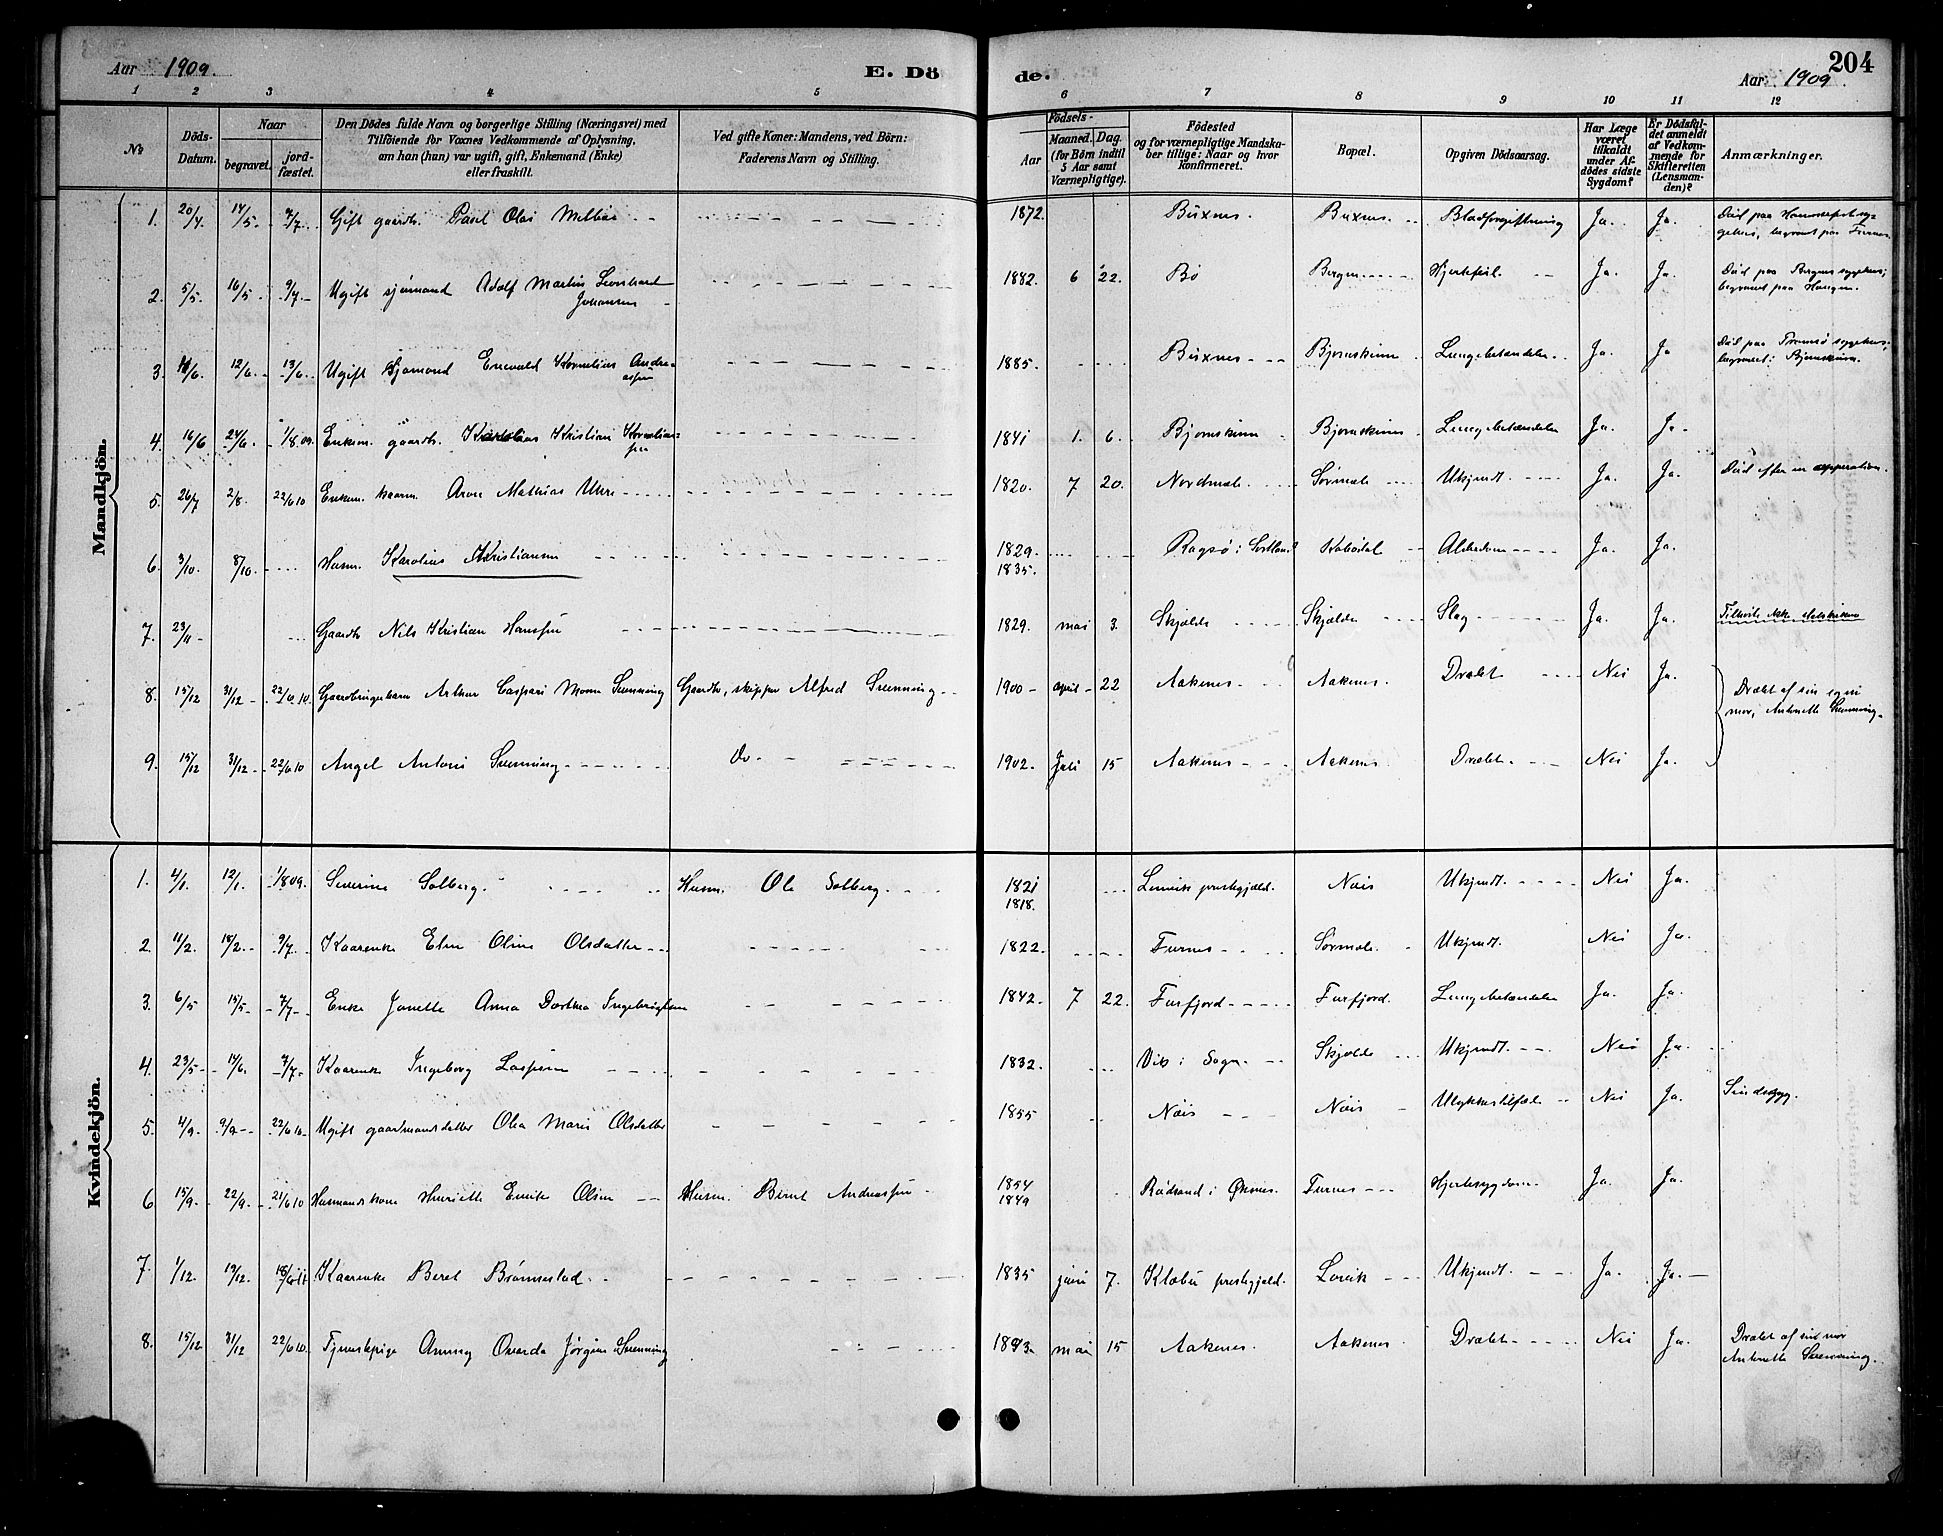 Aar 1909. E. Dö de. Aar 1909 204
1 2 3 4 5 6 7 8 9 10 11 12
No
Döds-Datum.
Naar
begravet.
jord-fæstet.
Den Dödes fulde Navn og borgerlige Stilling (Næringsvei) med
Tilföiende för Voxnes Vedkommende af Oplysning,
om han (hun) var ugift, gift, Enkemand (Enke)
eller fraskilt.
Ved gifte Koner: Mandens, ved Börn:
Faderens Navn og Stilling.
Födsels-
Aar
Maaned. Dag.
(for Börn indtil
5 Aar samt
Værnepligtige).
Födested
og for værnepligtige Mandska-
ber tillige: Naar og hvor
konfirmeret.
Bopæl.
Opgiven Dödsaarsag.
Har Læge
været
tilkaldt
under Af-
dödes sidste
Sygdom?
Er Dödsfal-
det anmeldt
af Vedkom-
mende for
Skifteretten
(Lensman-
den)?
Anmærkninger.
Mandkjön.
1. 20/4 14/5 7/7 Gift gaardb. Paul Olai 1872. Buxnes. Buxnes Blodforgiftning Ja. Ja. Död paa Hammerfest sy-
gehus, begravet paa Furnes
2. 5/5 16/5 9/7 Ugift sjömand Adolf Martin Leonhard
Johansen 1882. 6 22. Bö Bergen Hjertefeil Ja. Ja. Död paa Bergens sygehus;
begravet paa Haugen.
3. 12/6 13/6 Ugift Sjömand Enevald Kornelius Andre-
assen 1885 Buxnes Bjørnskinn Lungebetændelse Ja. Ja Död paa Tromsø sygehus,
begravet i Bjørnskinn.
4. 16/6 24/6 1/8.09. Enkem. gaardb. Kristian Kornelius-
sen 1841 1. 6. Bjørnskinn Bjørnskinn Lungebetændelse Ja. Ja
5. 26/7 2/8 22/6 10 Enkem. kaarm. Aron Mathias 1820. 7 20. Nordmele Sørmele Ukjendt Ja. Ja. Död efter en opperation.
6. 3/10. 8/10. Husm. Karolius Kristiansen 1829.
1835. i Sortland Alderdom Ja. Ja.
7. 23/11 Gaardb. Nils Kristian Hanssen 1829. mai 3. Skjolde Skjolde Slag Ja. Ja.
8. 15/12 31/12 22/6 10. Arthur Caspari Svenning Gaardb., skipper Alfred Svenning 1900 april 22 Aakenes Aakenes. Dræbt Nei Ja. Dræbt af sin egen
mor, Antonette Svenning.
9. 15/12 31/12 22/6 10 Angel Antoni Svenning Do 1902. Juli 15 Aakenes Aakenes Dræbt Nei Ja.
Kvindekjön.
1. 4/1. 12/1. 1/8 09. Severine Solberg. Husm. Ole Solberg 1821
1818. Lenvik prestegjeld. Nøis Ukjendt. Nei Ja.
2. 11/2. 18/2 9/7. Kaarenke Elen Oline Olsdatter 1822. Furnes Sørmele Ukjendt. Nei Ja.
3. 6/5 15/5 7/7 Enke Janette Anna Dorthea Ingebrigtsen 1842. 7 22. Furfjord Furfjord. Lungebetændelse Ja. Ja.
4. 23/5 14/6. 7/7 Kaarenke Ingeborg 1832. Vik i Sogn Skjolde Ukjendt. Nei Ja.
5. 4/9. 9/9 22/6 10 Ugift gaardmandsdatter Olea Marie Olsdatter 1855 Nøis Nøis Ulykkestilfæle Nei Ja. Sindssyg.
6. 15/9. 22/9. 21/6 10 Husmandskone Henriette Emilie Olsen Husm. Bernt Andreassen 1854
1849 Rødsand i Øksnes. Furnes Hjertesygdom. Ja. Ja.
7. 1/12. 19/12. Kaarenke Beret Brønnestad 1835 juni 7. Klæbu prestegjeld. Lovik Ukjendt. Ja. Ja.
8. 15/12 31/12 22/6 10. Tjenstepige Annny Ovarda Jørgine Svenning 1893. mai 15 Aakenes Aakenes Dræbt Nei Ja. Dræbt af sin mor
Antonette Svenning.